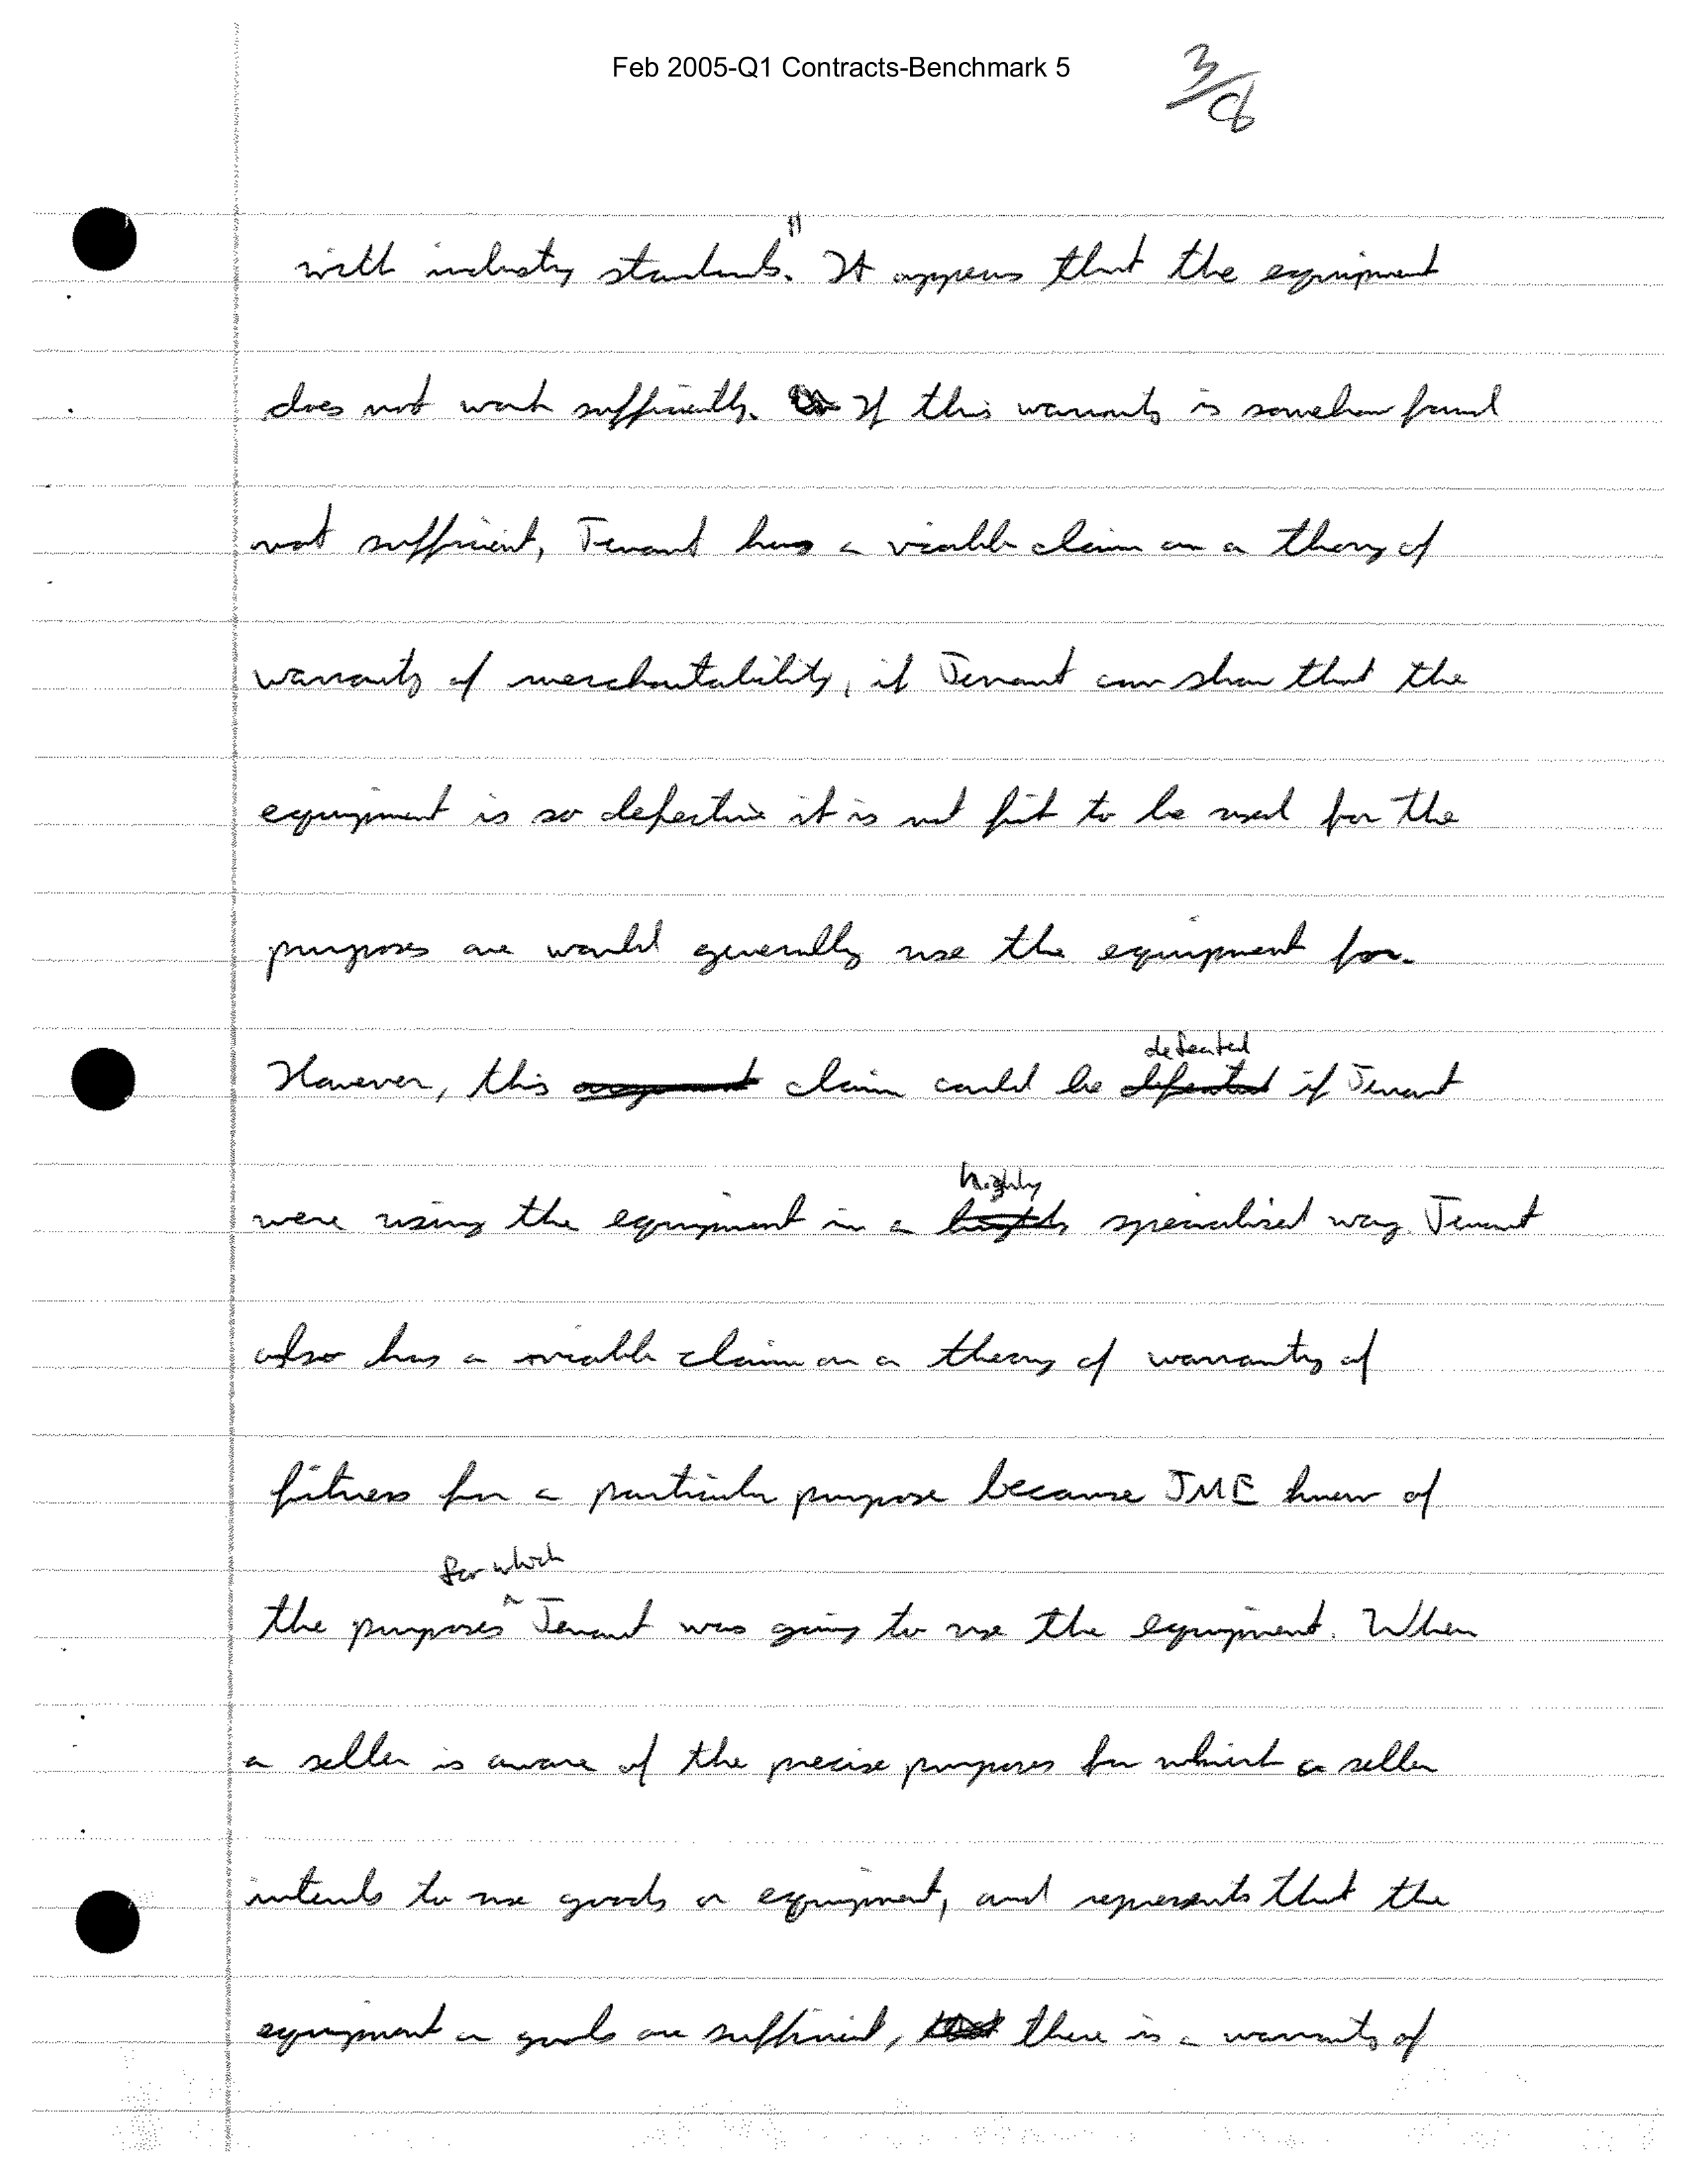 Feb 2005-Q1 Contracts-Benchmark 5
3/8
with industry standards." It appears that the equipment
does not work sufficiently. If this warranty is somehow found
not sufficient, Tenant has a viable claim on a theory of
warranty of merchantability, if Tenant can show that the
equipment is so defective it is not fit to be used for the
purposes one would generally use the equipment for.
However, this argument claim could be defeated defeated if Tenant
were using the equipment in a highly highly specialized way. Tenant
also has a viable claim on a theory of warranty of
fitness for a particular purpose because JME knew of
the purposes for which Tenant was going to use the equipment. When
a seller is aware of the precise purposes for which a seller
intends to use goods or equipment, and represents that the
equipment or goods are sufficient, there is a warranty of